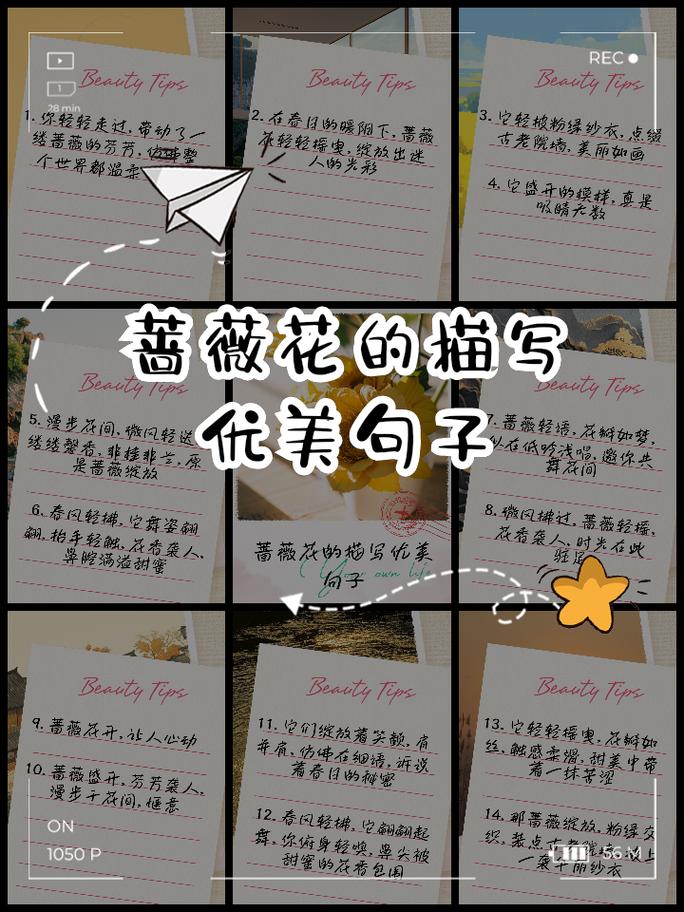 REC
28 min
Beauty Tips
1. 你轻轻走过,带动了一
缕蔷薇的芳芳,仿佛整
个世界都温柔
Beauty Tips
2. 在春日的暖阳下,蔷薇
花轻轻摇曳,绽放出迷
人的光彩
Beauty Tips
3. 它轻披粉绿纱衣,点缀
古老院墙,美丽如画
4. 它盛开的模样,真是
吸睛无数
蔷薇花的描写
优美句子
Beauty Tips
5. 漫步花间,微风轻送
缕缕馨香,非桂非兰,原
是蔷薇绽放
6. 春风轻拂,它舞姿翩
翩,抬手轻触,花香袭人,
鼻腔满溢甜蜜
蔷薇花的描写优美
句子
own life
Beauty Tips
7. 蔷薇轻语,花瓣如梦,
似在低吟浅唱,邀你共
舞花间
8. 微风拂过,蔷薇轻摇,
花香袭人,时光在此
驻足
Beauty Tips
9. 蔷薇花开,让人心动
10. 蔷薇盛开,芬芳袭人,
漫步于花间,惬意
Beauty Tips
11. 它们绽放着笑颜,肩
并肩,仿佛在细语,诉说
着春日的秘密
12. 春风轻拂,它翩翩起
舞,你俯身轻嗅,鼻尖被
甜蜜的花香包围
Beauty Tips
13. 它轻轻摇曳,花瓣如
丝,触感柔滑,甜美中带
着一抹苦涩
14. 那蔷薇绽放,粉绿交
织,装点古老院墙,以上
一袭华丽纱衣
ON
1050 P
56 M